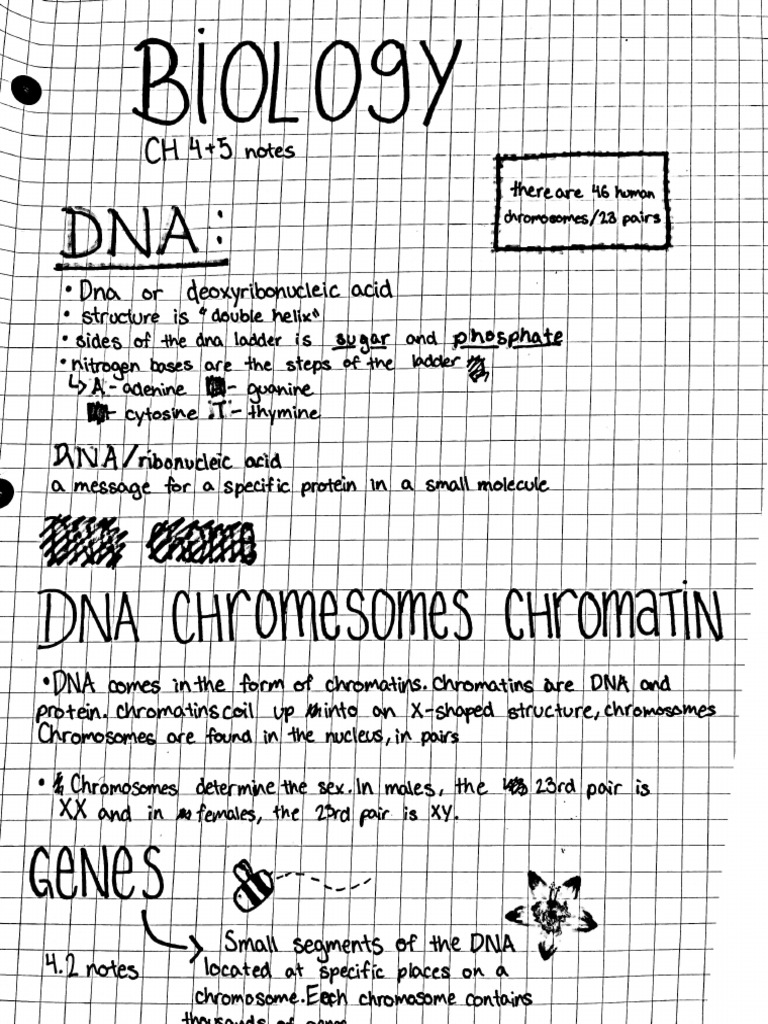 BiOLOgy
CH 4+5 notes
there are 46 human
chromosomes/23 pairs
DNA:
• Dna or deoxyribonucleic acid
• structure is "double helix"
• sides of the dna ladder is sugar and phosphate
• nitrogen bases are the steps of the ladder
↳ A - adenine - guanine
- cytosine T - thymine
RNA/ribonucleic acid
a message for a specific protein in a small molecule
DNA CHromesomes CHromaTiN
• DNA comes in the form of chromatins. Chromatins are DNA and
protein. chromatins coil up into an X-shaped structure, chromosomes
Chromosomes are found in the nucleus, in pairs
• Chromosomes determine the sex. In males, the 23rd pair is
XX and in females, the 23rd pair is XY.
GeNeS
4.2 notes
Small segments of the DNA
located at specific places on a
chromosome. Each chromosome contains
thousands of